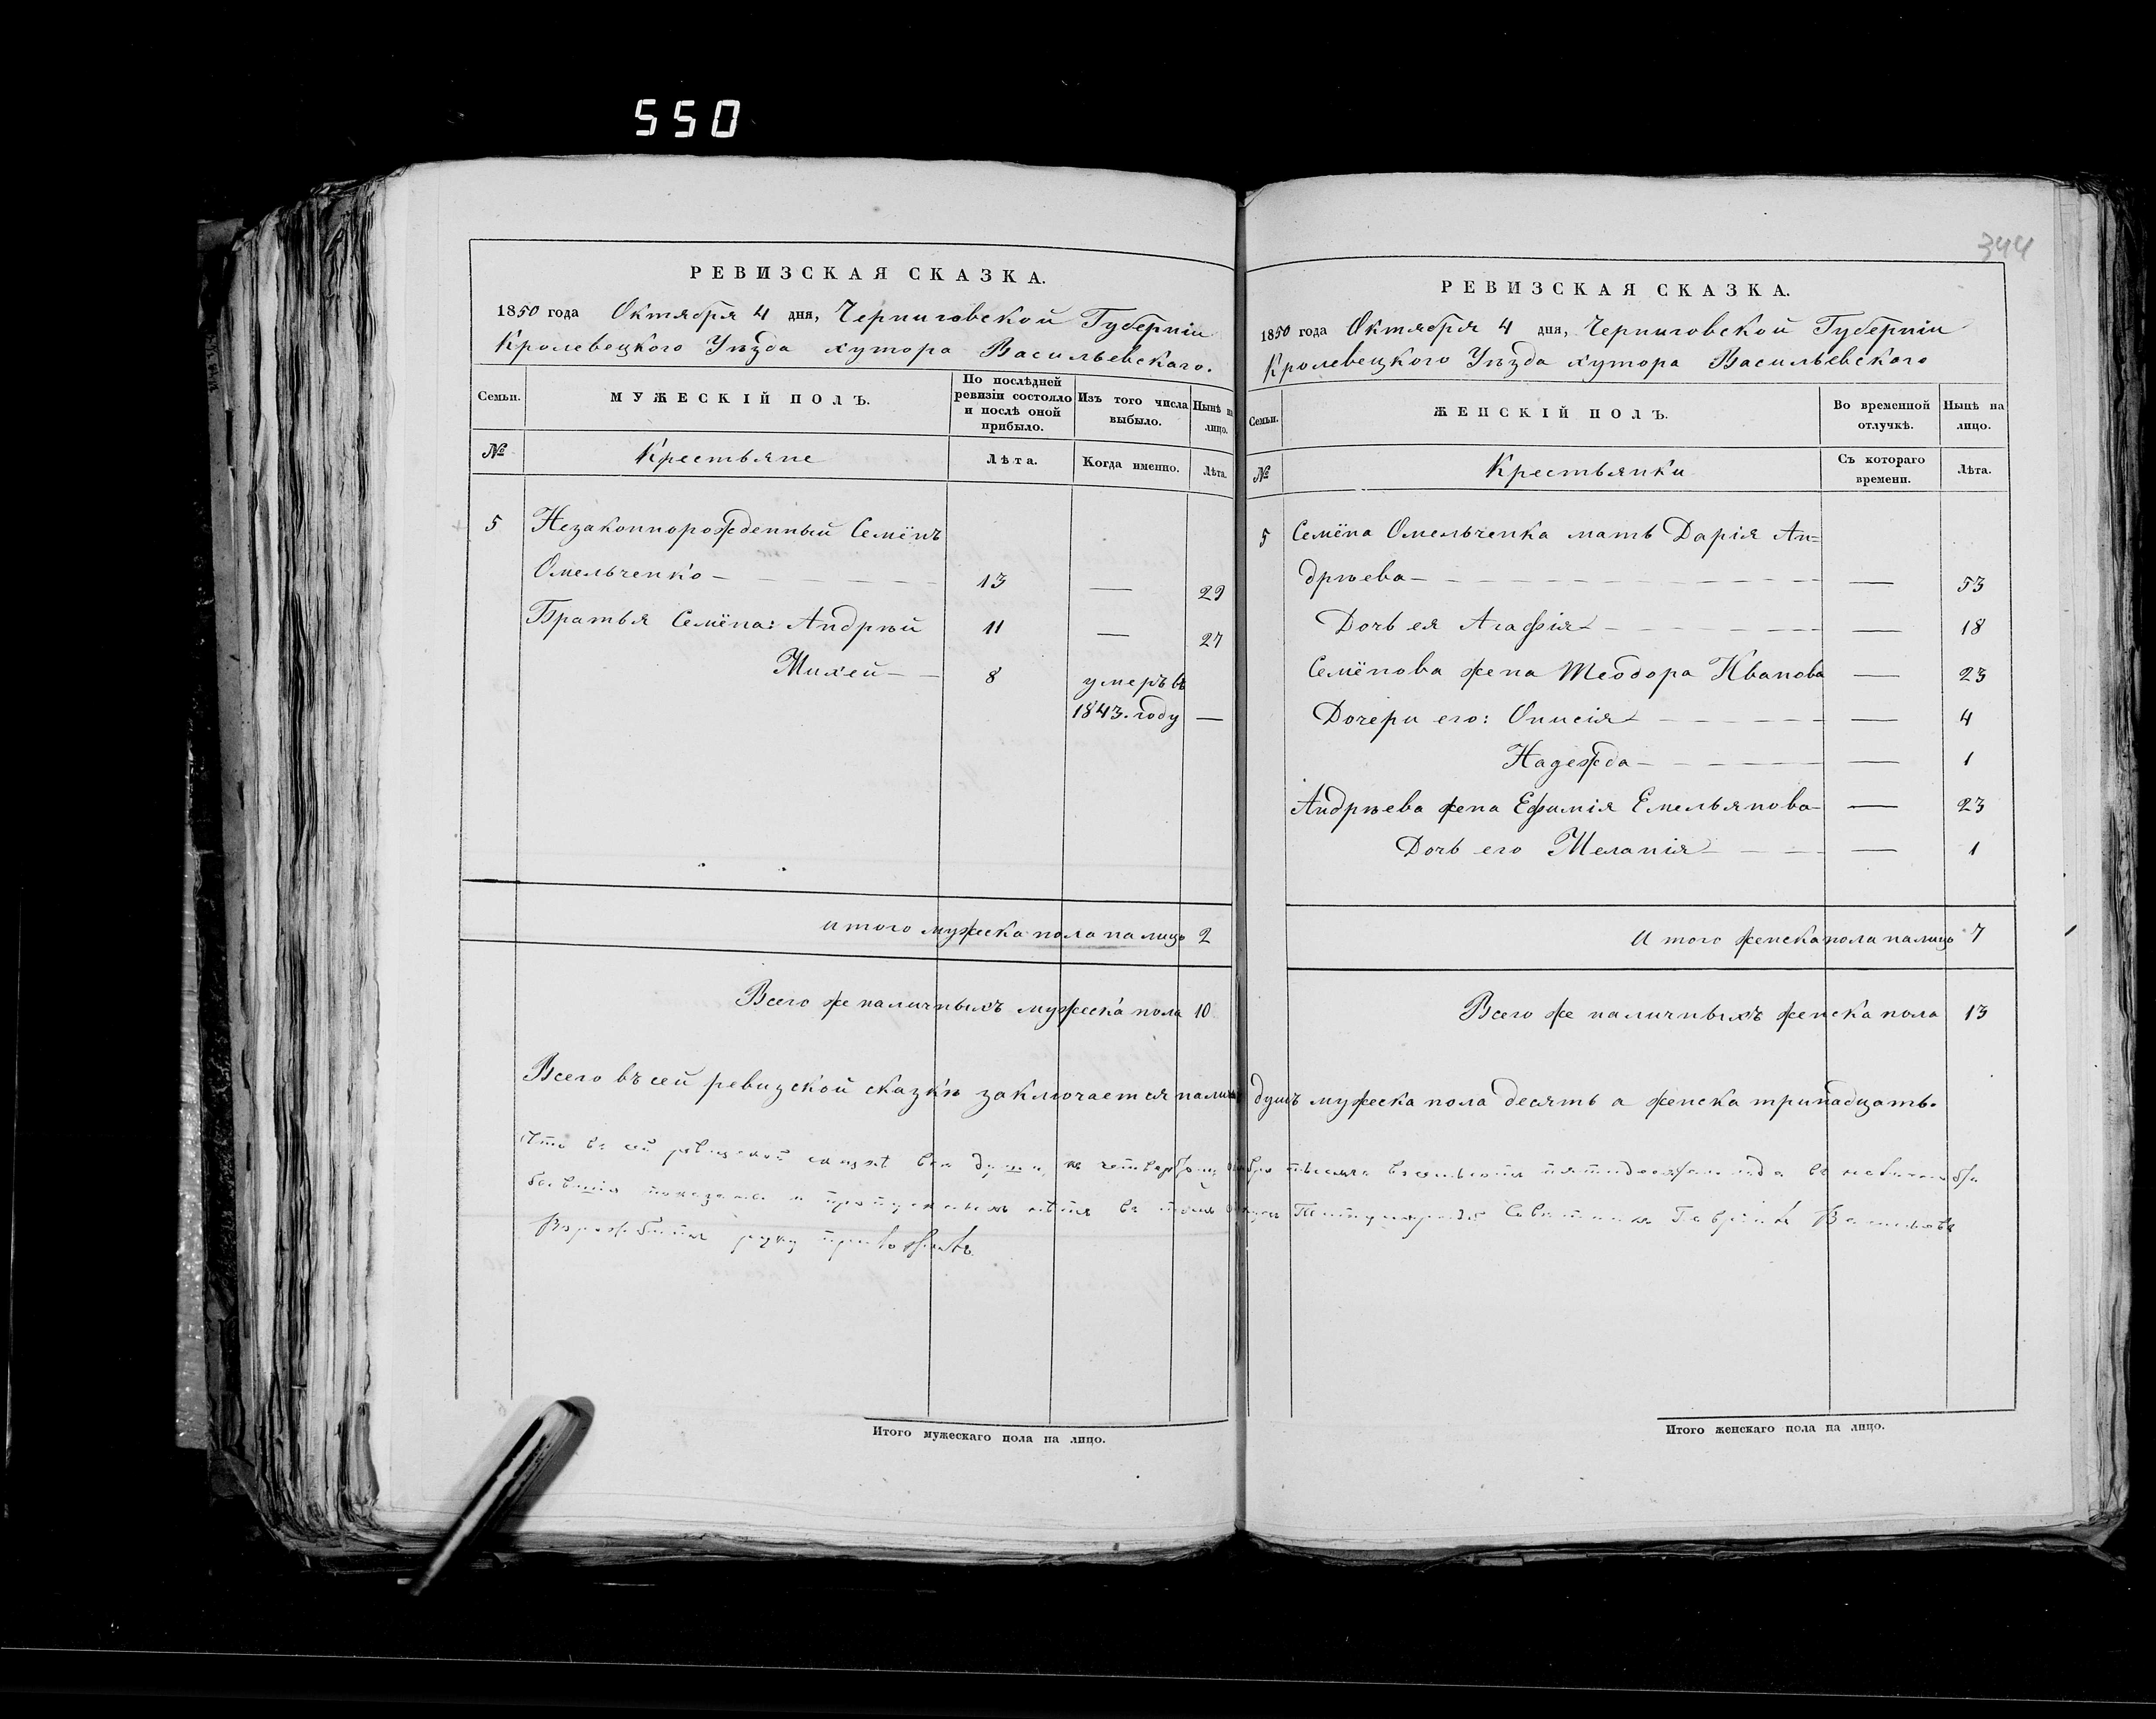 550
РЕВИЗСКАЯ СКАЗКА.
1850 года Октября 4 дня, Черниговской Губерніи
Кролевецкого Уѣзда хутора Васильевскаго.
Семьи. МУЖЕСКІЙ ПОЛЪ. По послѣдней ревизіи состояло и послѣ оной прибыло. Изъ того числа выбыло. Нынѣ на лицо.
№ Крестьяне Лѣта. Когда именно. Лѣта.
5 Незаконнорожденный Семёнъ
Омельченко 13 — 29
Братья Семёна: Андрѣй 11 — 27
Михей 8 умеръ въ
1843. году —
итого мужеска пола на лицо 2
Всего же наличныхъ мужеска пола 10
Итого мужескаго пола на лицо.
344
РЕВИЗСКАЯ СКАЗКА.
1850 года Октября 4 дня, Черниговской Губерніи
Кролевецкого Уѣзда хутора Васильевского
Семьи. ЖЕНСКІЙ ПОЛЪ. Во временной отлучкѣ. Нынѣ на лицо.
№ Крестьянки Съ котораго времени. Лѣта.
5 Семёна Омельченка мать Дарія Ан=
дрѣева — 53
Дочь ея Агафія — 18
Семёнова жена Феодора Иванова — 23
Дочери его: Онисія — 4
Надежда — 1
Андрѣева жена Ефимія Емельянова — 23
Дочь его Меланія — 1
Итого женска пола на лицо 7
Всего же наличныхъ женска пола 13
Всего въ сей ревизской сказкѣ заключается налицо душъ мужеска пола десять а женска тринадцать.
Что въ сей ревизской сказкѣ все души, по четвертое тысяча восемьсотъ пятидесятаго года въ наличности
бывшія показаны и пропущенныхъ нѣтъ въ томъ Титулярный Совѣтникъ Гаврiилъ Васильевъ
руку приложилъ
Итого женскаго пола на лицо.